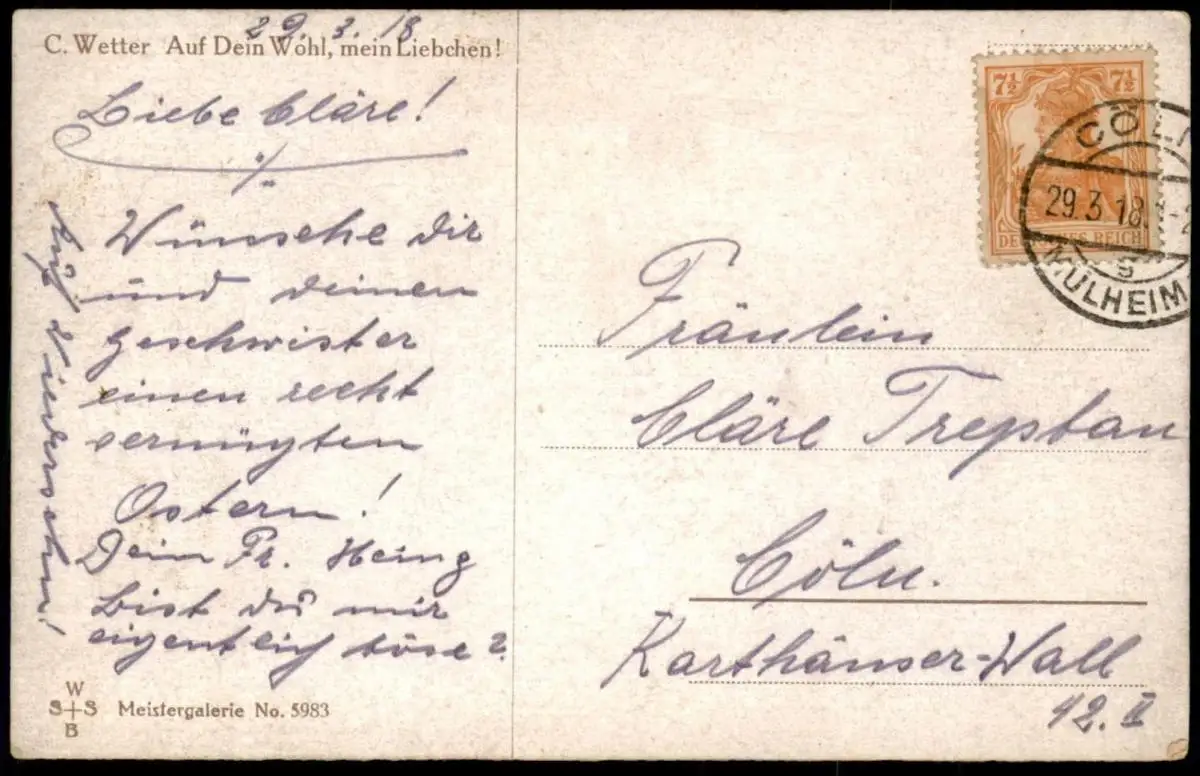 29. 3. 18.
C. Wetter Auf Dein Wohl, mein Liebchen!
Liebe Cläre!
Wünsche dir
und deinen
Geschwister
einen recht
vernügten
Ostern!
Dein Fr. Heinz
Bist du mir
eigentlich böse?
Auf Wiedersehn!
W
S S
B
Meistergalerie No. 5983
7½ 7½
DEUTSCHES REICH
CÖLN
29.3.18.
MÜLHEIM
g
Fräulein
Cläre Treptau
Cöln.
Karthäuser-Wall
12. II